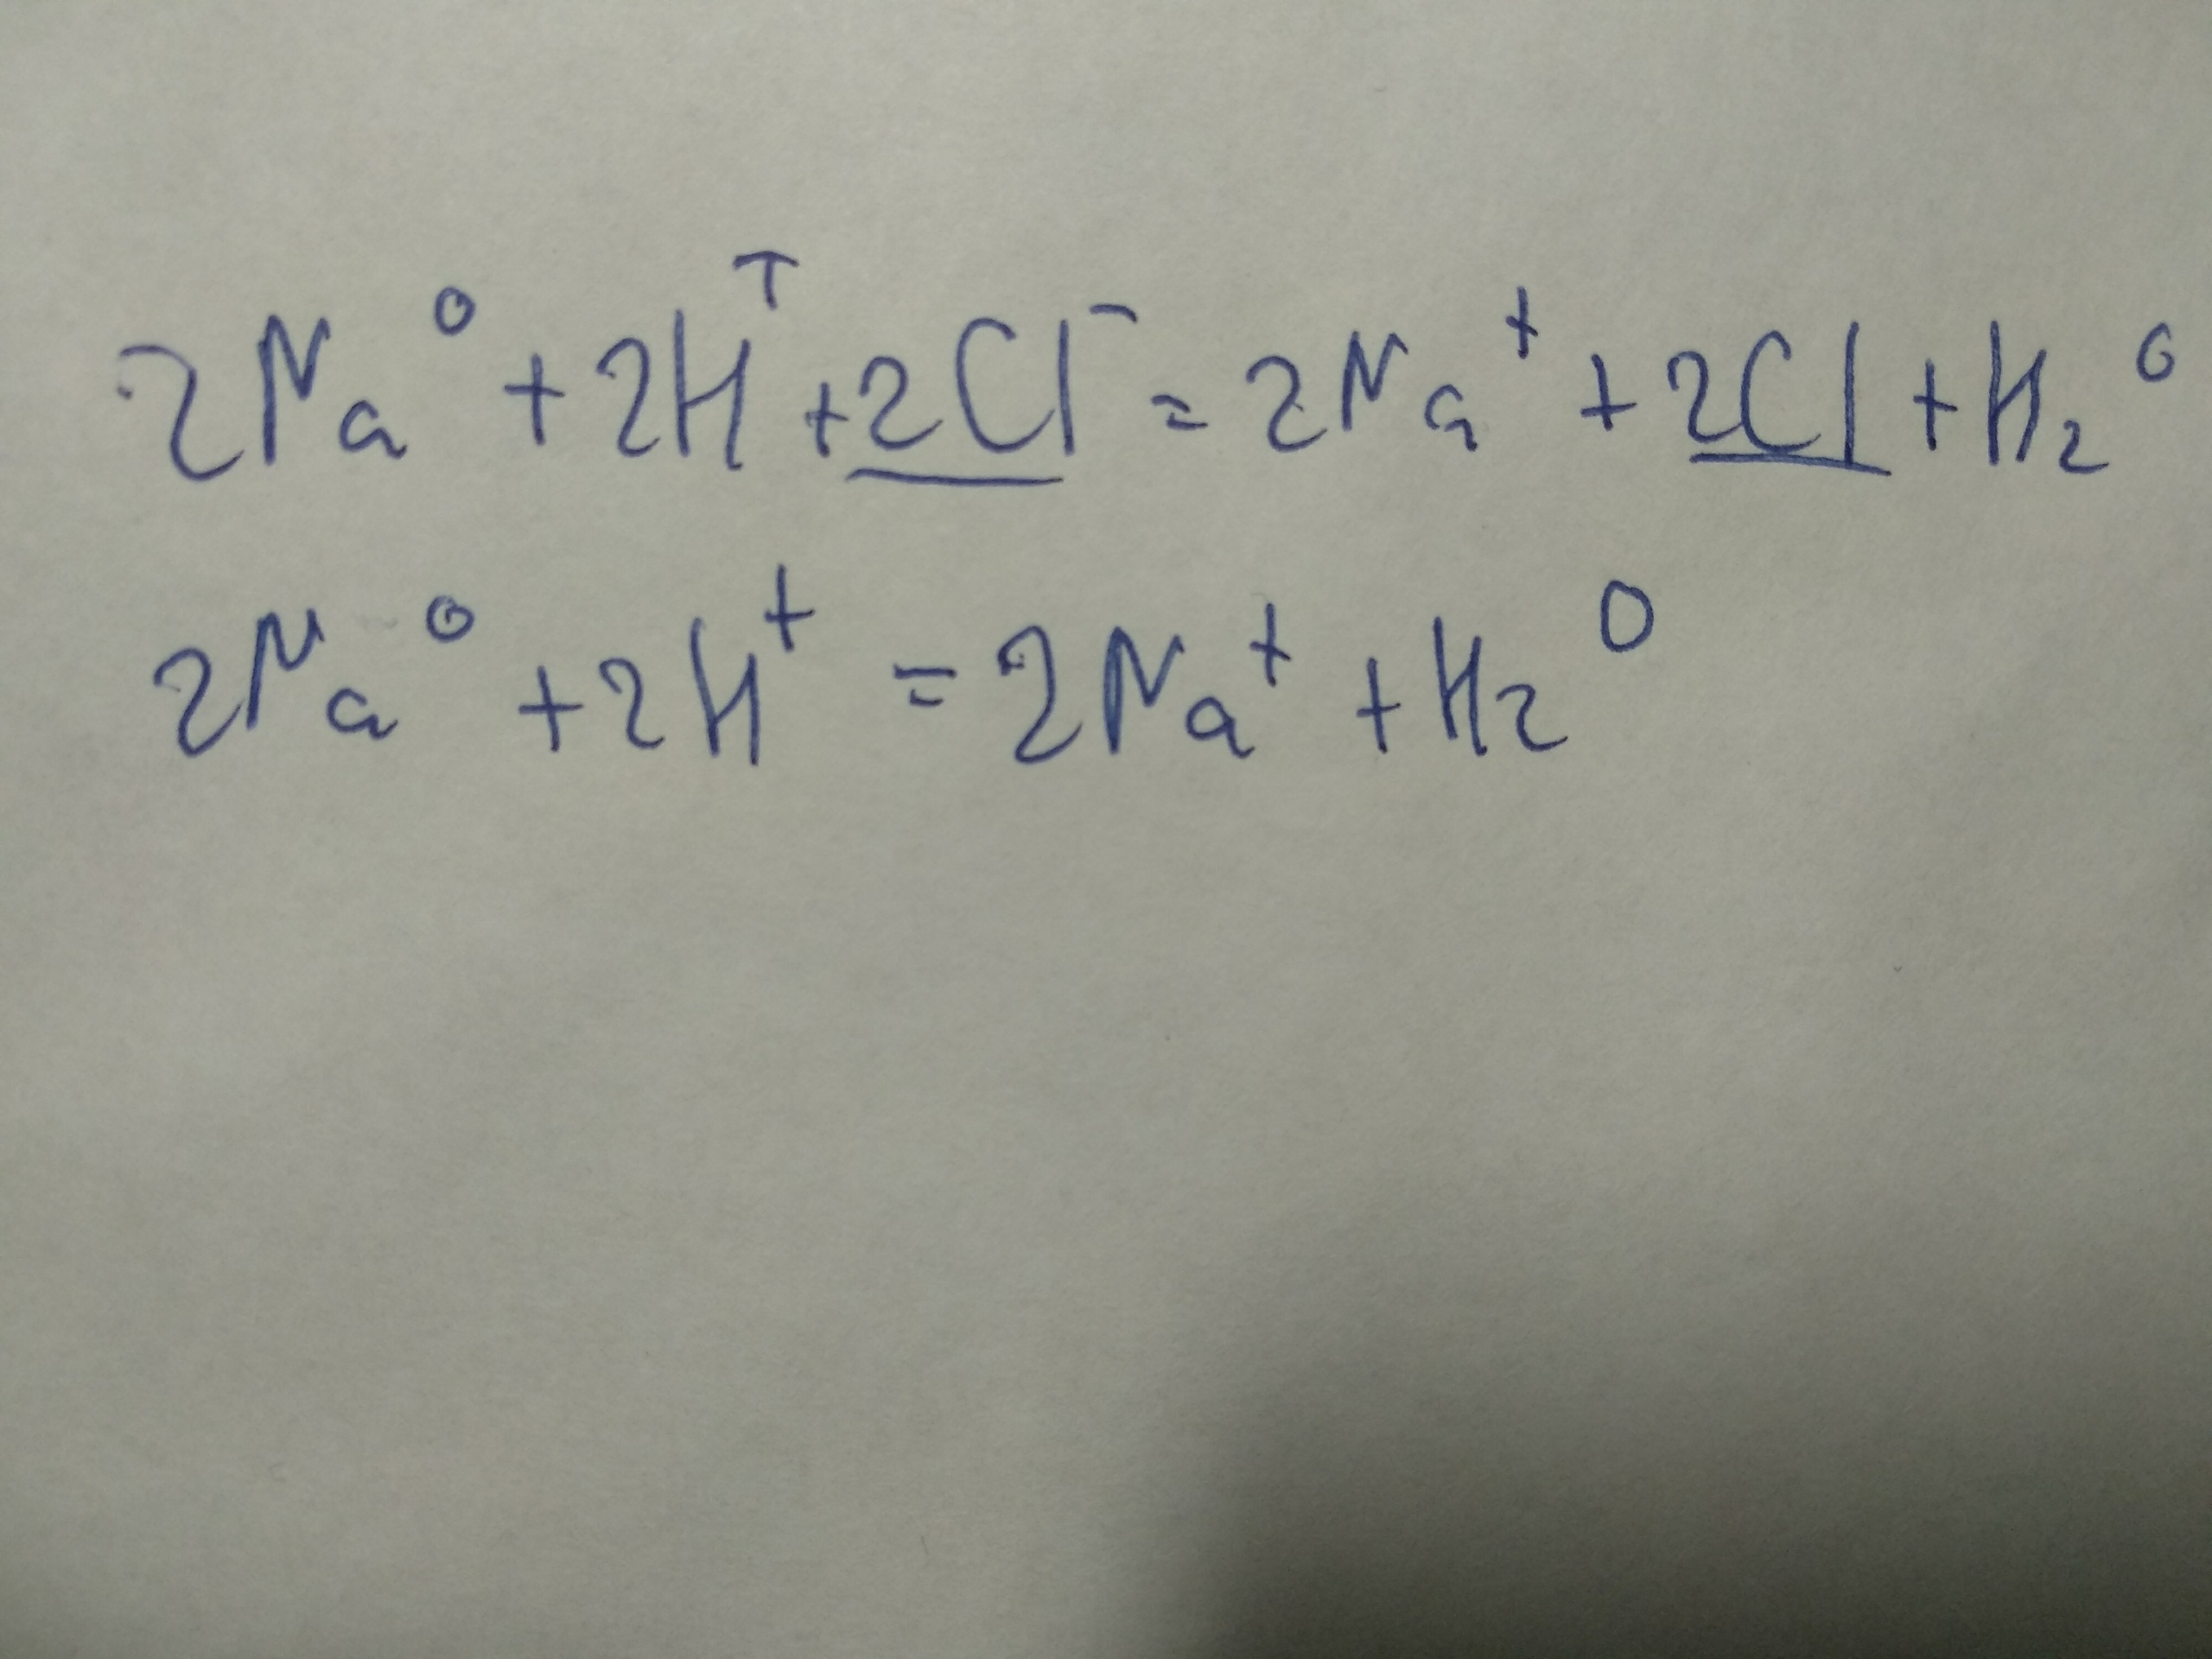 2Na⁰ + 2H⁺ + 2Cl⁻ = 2Na⁺ + 2Cl + H₂⁰
2Na⁰ + 2H⁺ = 2Na⁺ + H₂⁰